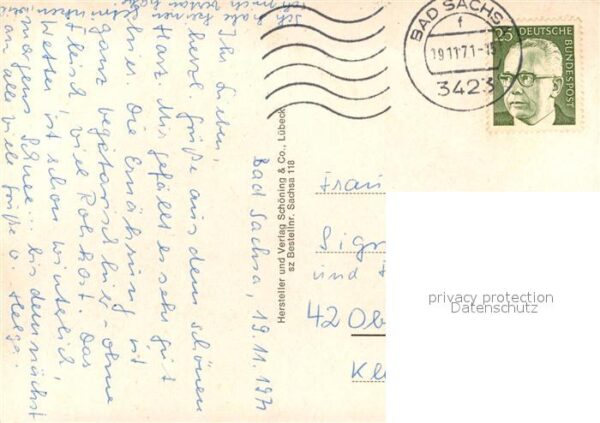 BAD SACHSA
f
19.11.71-15
3423
25
DEUTSCHE
BUNDESPOST
Bad Sachsa, 19.11.1971
Ihr Lieben,
herzl. Grüße aus dem schönen
Harz. Mir gefällt es sehr gut
hier. Die Ernährung ist
ganz vegitarisch hier - ohne
Fleisch, viel Rohkost. Das
Wetter ist schon winterlich,
morgens Schnee... bis demnächst
an alle viele Grüße v. Helga
Ich habe
Hersteller und Verlag Schöning & Co., Lübeck
sz Bestellnr. Sachsa 118
Frau
Sigr
und
42 Ob
Kle
privacy protection
Datenschutz